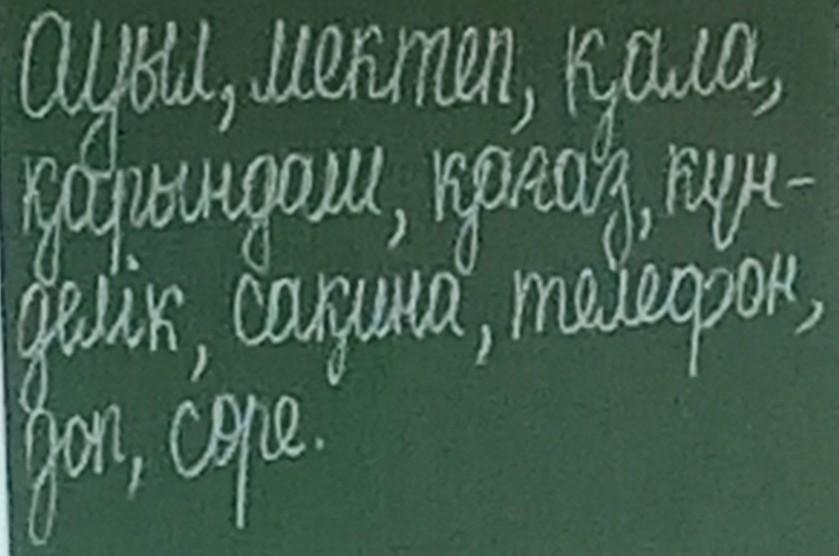 Ауыл, мектеп, қала,
қарындаш, қағаз, күн-
делік, сақина, телефон,
доп, сөре.